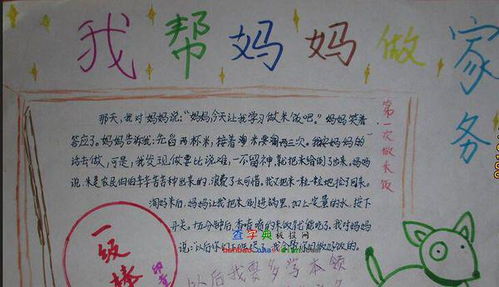 我帮妈妈做家务
第一次做米饭
那天，我对妈妈说："妈妈今天让我学习做米饭吧。"妈妈笑着
答应了。妈妈告诉我：先舀两杯米，接着淘米要淘两三次。我按妈妈的
话去做，可是，我发现，做要比说难，一不留神，就把米给倒了出来。妈妈
说：米是农民伯伯辛辛苦苦种出来的，浪费了太可惜。我又把米一粒一粒地捡了回来。
淘好米后，妈妈让我把米倒进锅里，加上定量的水，按下
开关，十五分钟后，香喷喷的米饭就
说："以后你
一级棒
查字典 教程网
以后我要多学本领